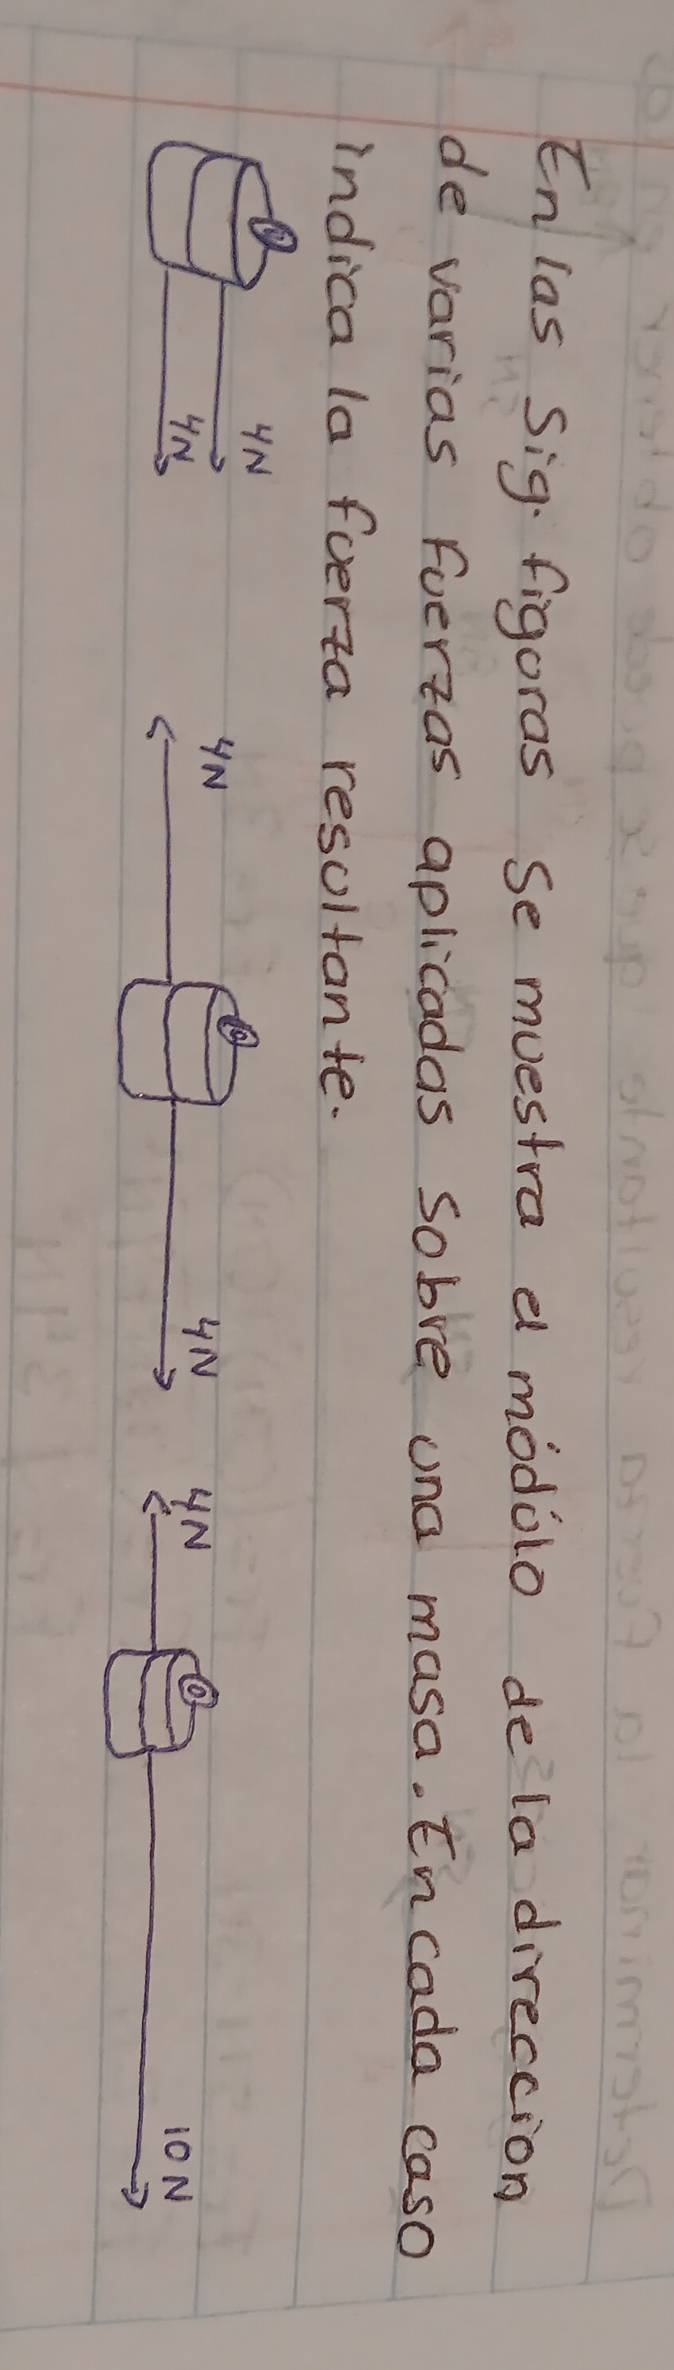 En las Sig. figuras Se muestra el módulo de la direccion
de varias Fuerzas aplicadas Sobre una masa. En cada caso
indica la fuerza resultante.
4N 4N 4N 4N 4N 10N